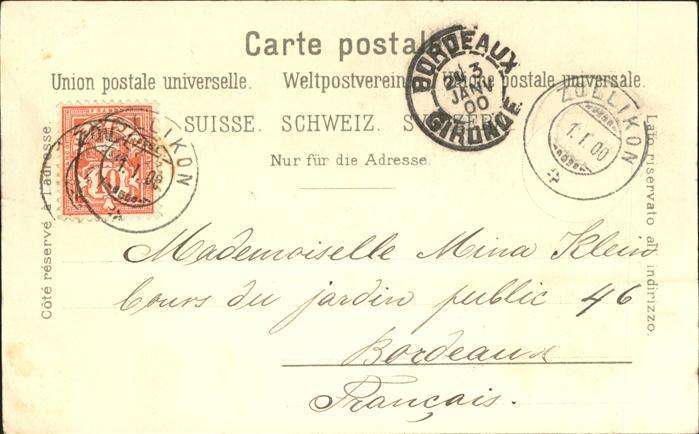 Carte postale
Union postale universelle. Weltpostverein. Unione postale universale.
SUISSE. SCHWEIZ. SVIZZERA.
Nur für die Adresse.
Côté réservé à l'adresse
Lato riservato all indirizzo.
BORDEAUX
3
JANV
00
GIRONDE
ZOLLIKON
1.I.00
ZOLLIKON
1.I.00
10
Mademoiselle Mina Klein
Cours du jardin public 46
Bordeaux
Français.